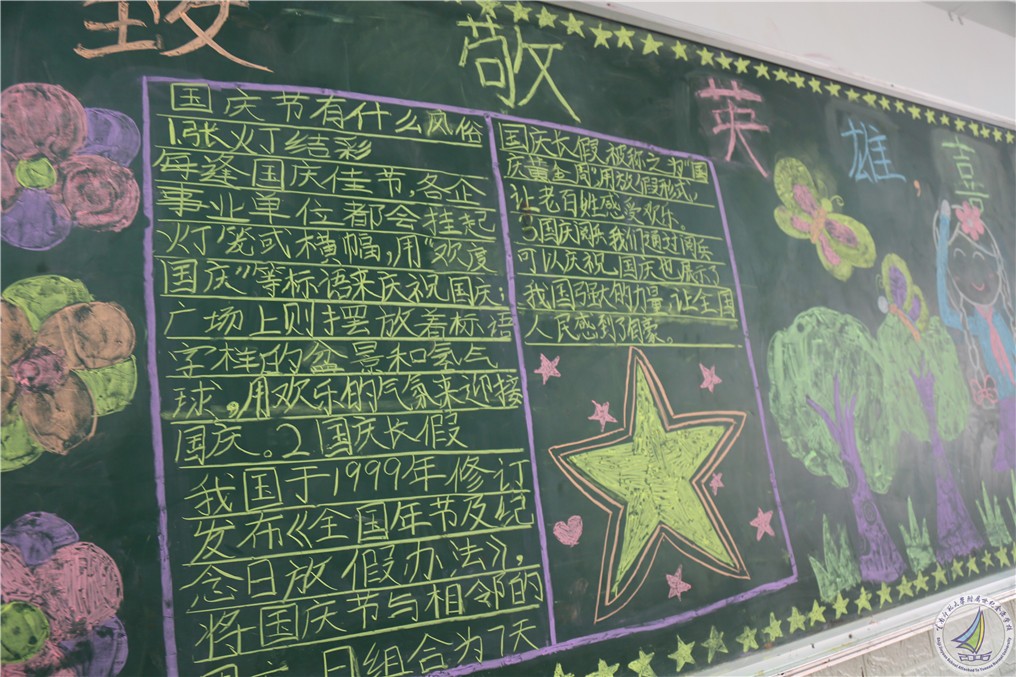 致敬英雄,喜
国庆节有什么风俗
1.张灯结彩
每逢国庆佳节,各企
事业单位都会挂起
灯笼或横幅,用“欢度
国庆”等标语来庆祝国庆;
广场上则摆放着标语
字样的盆景和氢气
球,用欢乐的气氛来迎接
国庆。2.国庆长假
我国于1999年修订
发布《全国年节及纪
念日放假办法》,
将国庆节与相邻的
日组合为7天
国庆长假,被称之为“国
庆黄金周”用放假形式,
让老百姓感受欢乐。
3.国庆阅兵我们通过阅兵
可以庆祝国庆也展示了
我国强大的力量,让全国
人民感到了自豪。